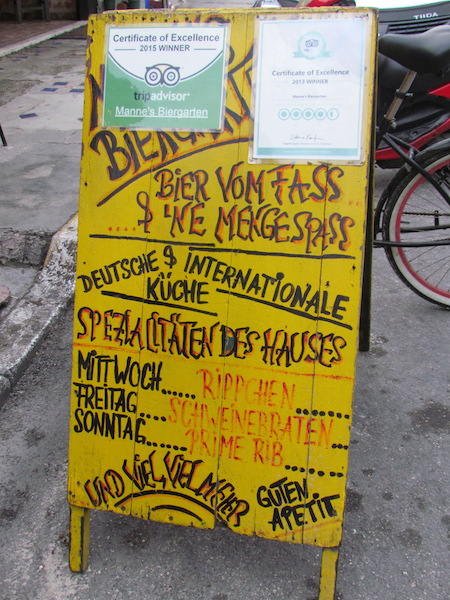 Certificate of Excellence
2015 WINNER
tripadvisor
Manne's Biergarten
Certificate of Excellence
2013 WINNER
Manne's Biergarten
BIER VOM FASS
& 'NE MENGE SPASS
DEUTSCHE & INTERNATIONALE
KÜCHE
SPEZIALITÄTEN DES HAUSES
MITTWOCH...... RIPPCHEN
FREITAG.... SCHWEINEBRATEN
SONNTAG....... PRIME RIB
UND VIEL, VIEL MEHR
GUTEN
APETIT
TIIDA